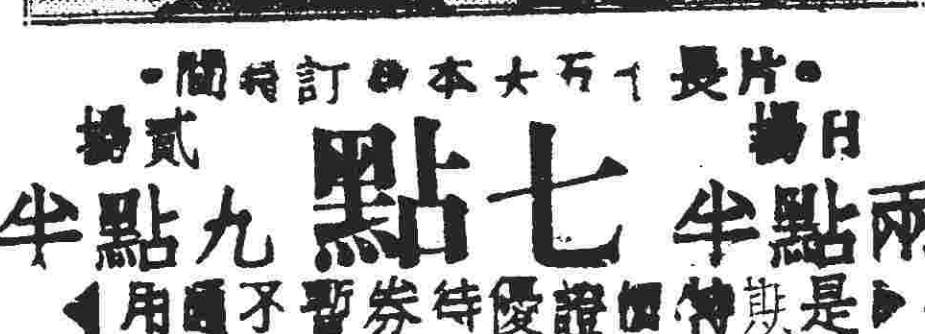 •片長十万大本 訂 間•
日場 貳場
兩點半 七點 九點半
▶是期特價證優待券暫不適用◀